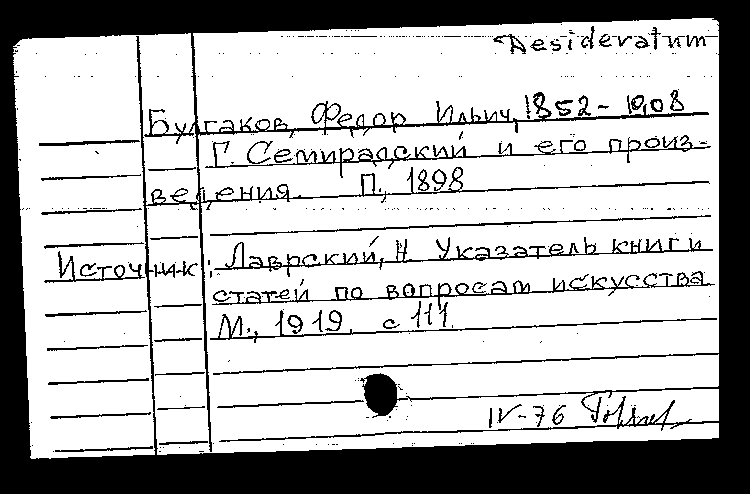 Desideratum
Булгаков, Федор Ильич, 1852-1908
Г. Семирадский и его произ-
ведения. П., 1898
Источник: Лаврский, Н. Указатель книг и
статей по вопросам искусства
М., 1919. с 111.
IV-76